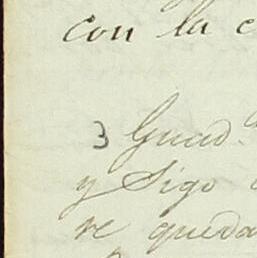 con la c
3 Guad.
y Sigo
re queda